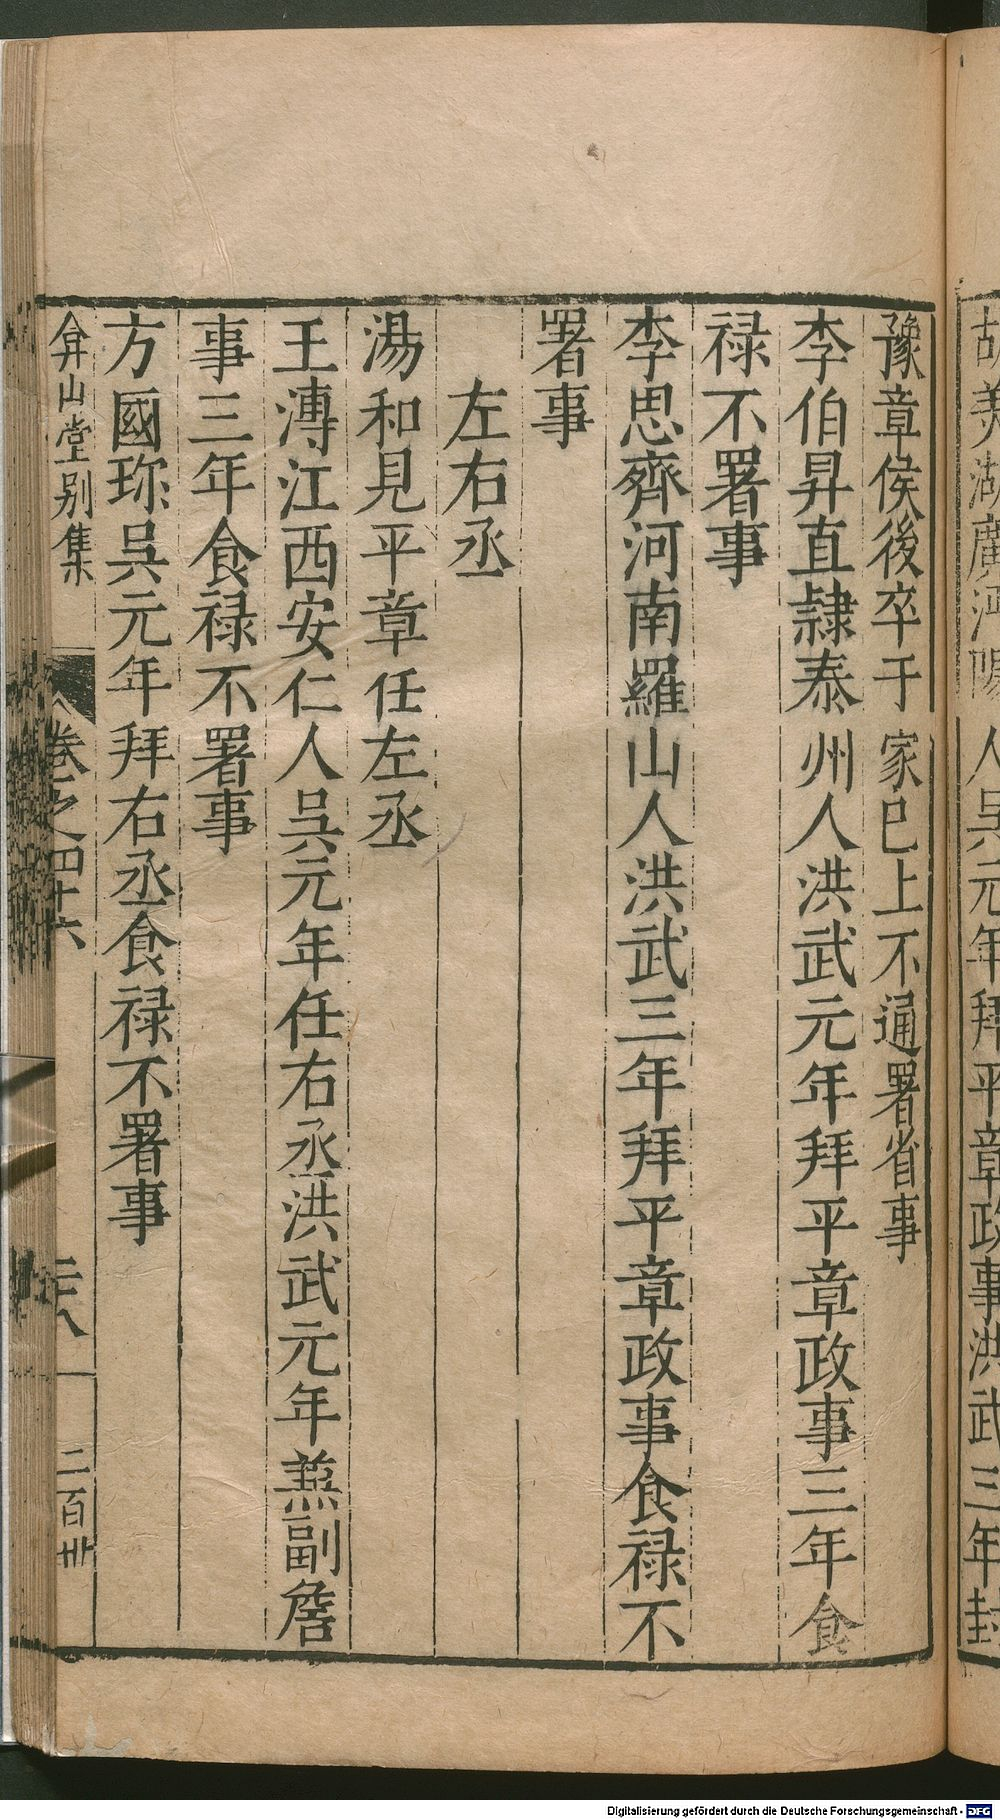 胡美湖廣沔陽人吳元年拜平章政事洪武三年封
豫章侯後卒于家已上不通署省事
李伯昇直隸泰州人洪武元年拜平章政事三年食
禄不署事
李思齊河南羅山人洪武三年拜平章政事食禄不
署事
左右丞
湯和見平章任左丞
王溥江西安仁人吳元年任右丞洪武元年兼副詹
事三年食禄不署事
方國珎吳元年拜右丞食禄不署事
弇山堂别集
卷之四十六
二百卅
Digitalisierung gefördert durch die Deutsche Forschungsgemeinschaft - DFG